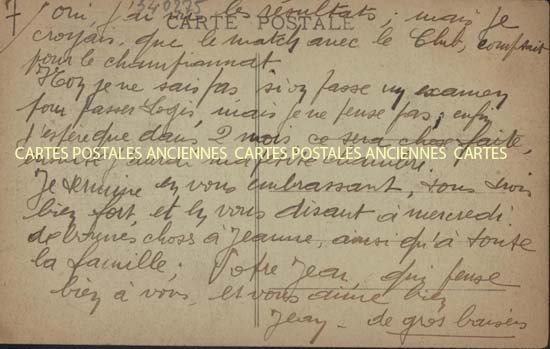 340225
CARTE POSTALE
oui, j'ai vu les résultats; mais je
croyais, que le match avec le Club, comptait
pour le championnat
Moi je ne sais pas si on passe un examen
pour passer logis, mais je ne pense pas; enfin
j'espère que dans 2 mois ce sera chose faite,
CARTES POSTALES ANCIENNES CARTES POSTALES ANCIENNES CARTES
Je termine en vous embrassant, tous trois
bien fort, et en vous disant à mercredi.
de bonnes choses à Jeanne, ainsi qu'à toute
la famille. Votre Jean, qui pense
bien à vous, et vous aime bien
Jean - de gros baisers